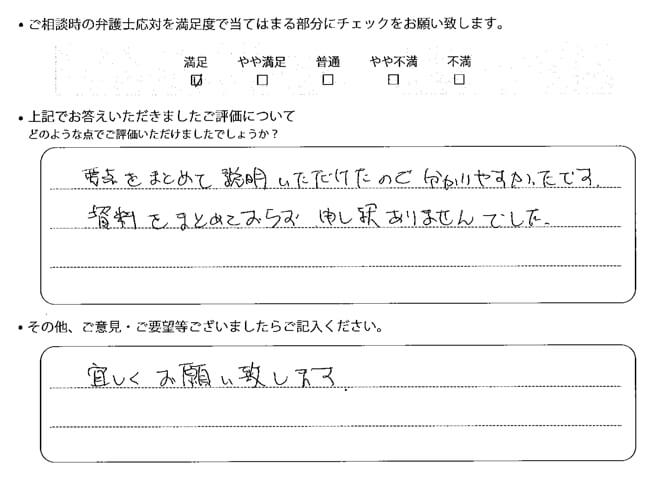 ・ご相談時の弁護士応対を満足度で当てはまる部分にチェックをお願い致します。
満足 やや満足 普通 やや不満 不満
☑ □ □ □ □
・上記でお答えいただきましたご評価について
どのような点でご評価いただけましたでしょうか?
要点をまとめて説明いただけたので分かりやすかったです。
資料をまとめておらず申し訳ありませんでした。
・その他、ご意見・ご要望等ございましたらご記入ください。
宜しくお願い致します。